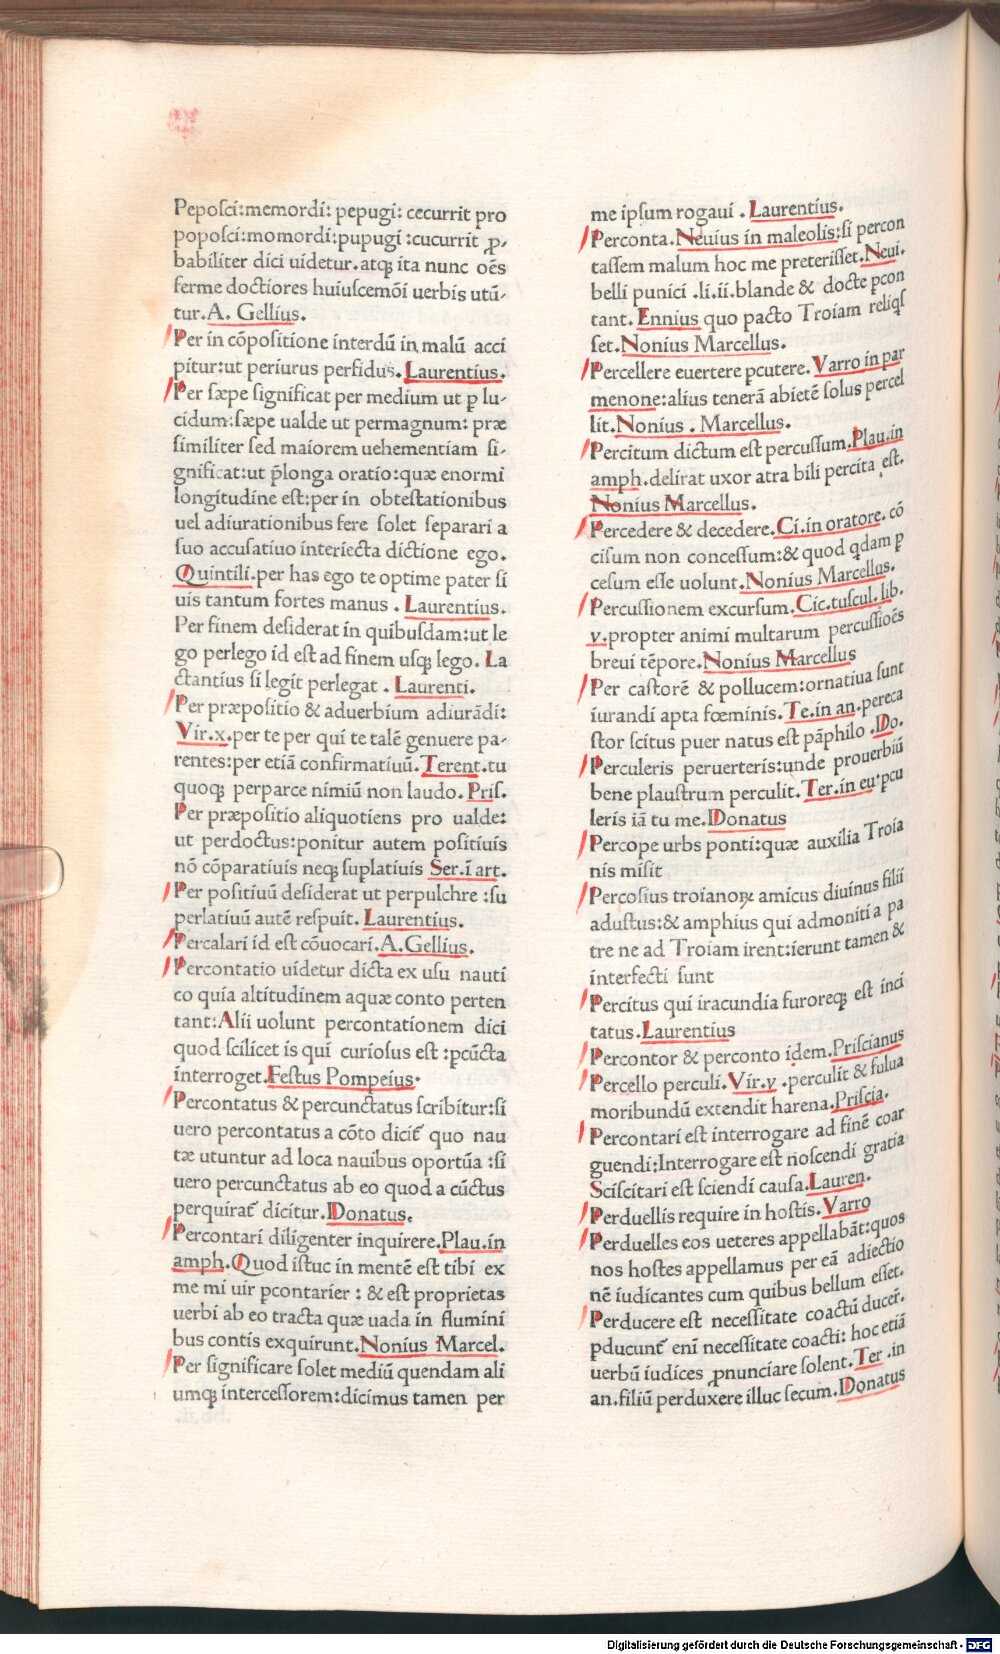 Peposci:memordi: pepugi: cecurrit pro
poposci:momordi:pupugi :cucurrit ꝓ-
babiliter dici uidetur.atqꝫ ita nunc oẽs
ferme doctiores huiuscemõi uerbis utũ-
tur.A. Gellius.
Per in cõpositione interdũ in malũ acci
pitur:ut periurus perfidus. Laurentius.
Per sæpe significat per medium ut ꝑ lu-
cidum:sæpe ualde ut permagnum: præ
similiter sed maiorem uehementiam si-
gnificat:ut p̃longa oratio:quæ enormi
longitudine est:per in obtestationibus
uel adiurationibus fere solet separari a
suo accusatiuo interiecta dictione ego.
Quintili.per has ego te optime pater si
uis tantum fortes manus . Laurentius.
Per finem desiderat in quibusdam:ut le
go perlego id est ad finem usqꝫ lego. La
ctantius si legit perlegat . Laurenti.
Per præpositio & aduerbium adiurãdi:
Vir.x.per te per qui te talẽ genuere pa-
rentes:per etiã confirmatiuũ. Terent.tu
quoqꝫ perparce nimiũ non laudo. Pris.
Per præpositio aliquotiens pro ualde:
ut perdoctus:ponitur autem positiuis
nõ cõparatiuis neqꝫ suplatiuis Ser.ĩ art.
Per positiuũ desiderat ut perpulchre :su
perlatiuũ autẽ respuit. Laurentius.
Percalari id est cõuocari.A.Gellius.
Percontatio uidetur dicta ex usu nauti
co quia altitudinem aquæ conto perten
tant:Alii uolunt percontationem dici
quod scilicet is qui curiosus est :ꝑcũcta
interroget.Festus Pompeius.
Percontatus & percunctatus scribitur:si
uero percontatus a cõto dicit̃ quo nau
tæ utuntur ad loca nauibus oportũa :si
uero percunctatus ab eo quod a cũctus
perquirat̃ dicitur.Donatus.
Percontari diligenter inquirere.Plau.in
amph.Quod istuc in mentẽ est tibi ex
me mi uir ꝑcontarier : & est proprietas
uerbi ab eo tracta quæ uada in flumini
bus contis exquirunt.Nonius Marcel.
Per significare solet mediũ quendam ali
umqꝫ intercessorem:dicimus tamen per
me ipsum rogaui . Laurentius.
Perconta.Neuius in maleolis:si percon
tassem malum hoc me preterisset.Neui.
belli punici .li.ii.blande & docte ꝑcon
tant. Ennius quo pacto Troiam reliqs
set.Nonius Marcellus.
Percellere euertere ꝑcutere. Varro in par
menone:alius tenerã abietẽ solus percel
lit.Nonius . Marcellus.
Percitum dictum est percussum.Plau.in
amph.delirat uxor atra bili percita est.
Nonius Marcellus.
Percedere & decedere.Ci.in oratore. cõ
cisum non concessum:& quod qdam ꝑ
cesum esse uolunt.Nonius Marcellus.
Percussionem excursum.Cic.tuscul.lib.
v.propter animi multarum percussioẽs
breui tẽpore.Nonius Marcellus
Per castorẽ & pollucem:ornatiua sunt
iurandi apta fœminis.Te.in an.pereca
stor scitus puer natus est pãphilo .Do.
Perculeris peruerteris:unde prouerbiũ
bene plaustrum perculit. Ter.in eu.pcu
leris iã tu me.Donatus
Percope urbs ponti:quæ auxilia Troia
nis misit
Percosius troianoꝝ amicus diuinus filii
adustus:& amphius qui admoniti a pa
tre ne ad Troiam irent:ierunt tamen &
interfecti sunt
Percitus qui iracundia furoreqꝫ est inci
tatus.Laurentius
Percontor & perconto idem.Priscianus
Percello perculi.Vir.v .perculit & fulua
moribundũ extendit harena.Priscia.
Percontari est interrogare ad finẽ coar
guendi:Interrogare est noscendi gratia
Sciscitari est sciendi causa.Lauren.
Perduellis require in hostis. Varro
Perduelles eos ueteres appellabãt:quos
nos hostes appellamus per eã adiectio
nẽ iudicantes cum quibus bellum esset.
Perducere est necessitate coactũ ducer.
ꝑducunt̃ eni necessitate coacti: hoc etiã
uerbũ iudices ꝓnunciare solent.Ter .in
an.filiũ perduxere illuc secum.Donatus
Digitalisierung gefördert durch die Deutsche Forschungsgemeinschaft - DFG